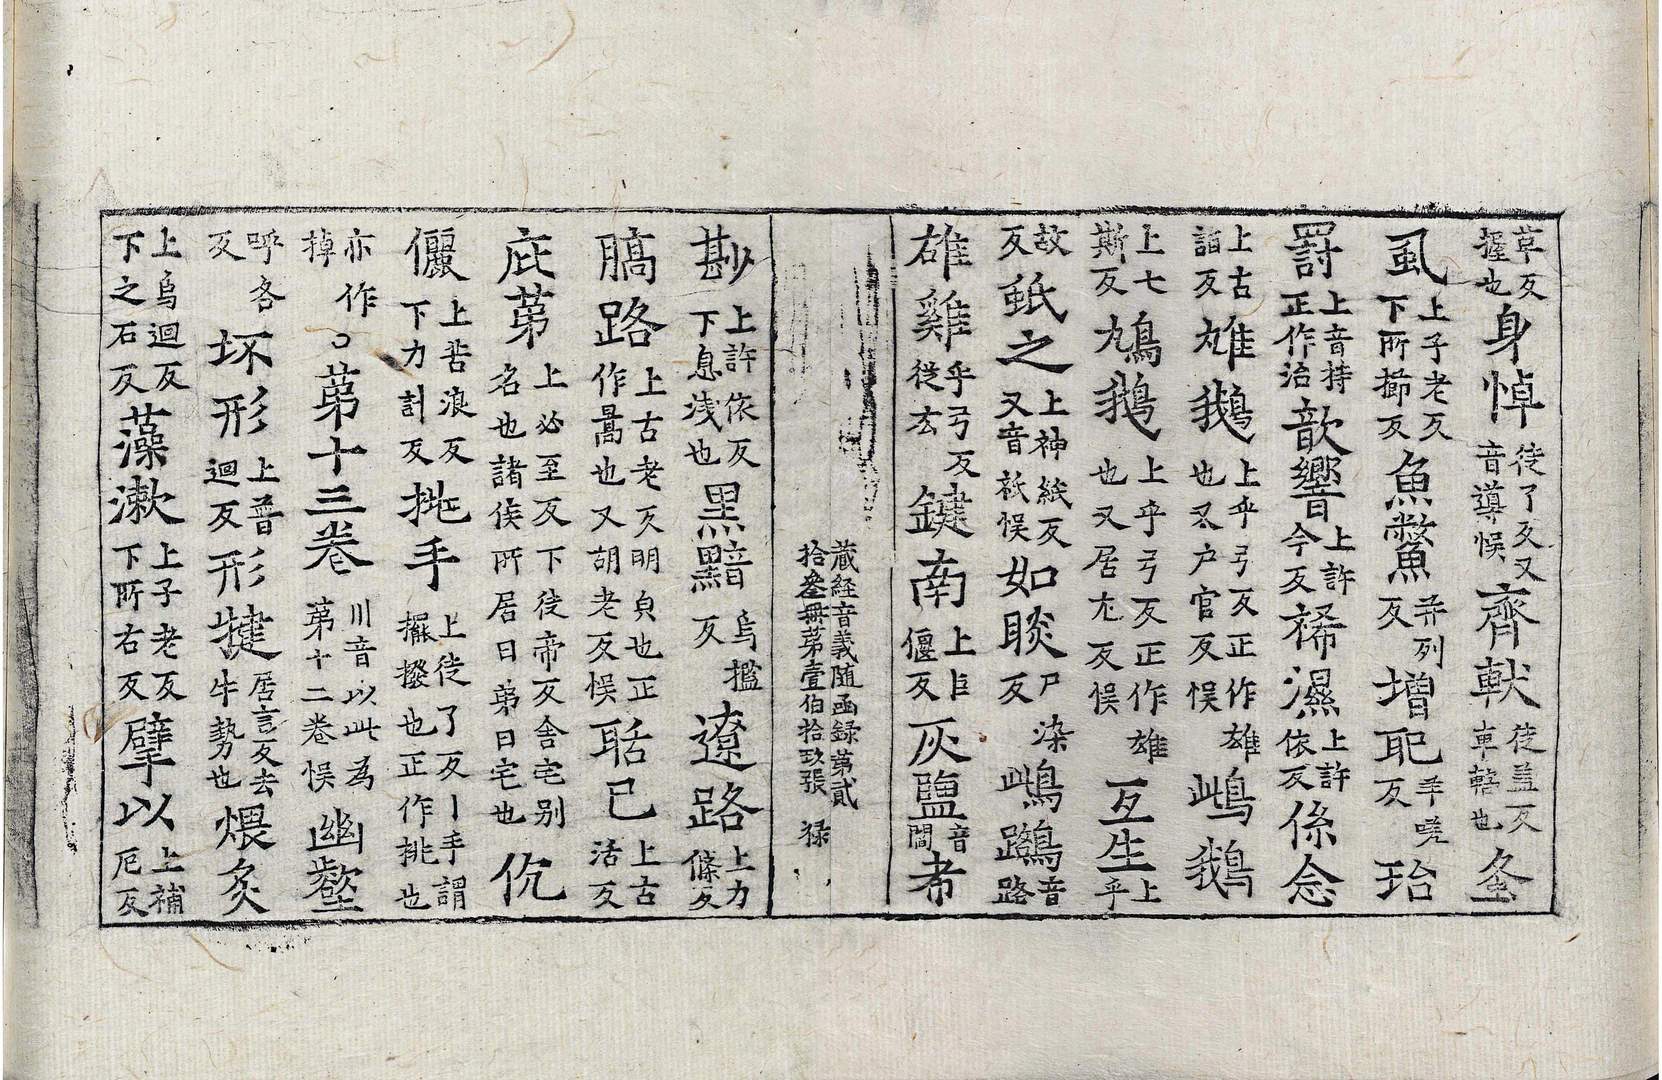 草反握也身悼徒了反又音導悮齊軑徒盖反車轄也夆
虱上子老反下所擳反魚鱉并列反增毦羊嘵反珆
罸上音持正作治歆響上許今反祶濕上許依反係念
上古詣反雄鵝上乎弓反正作雄也又户官反悮鴟鵝
上七斯反鳩鵝上乎弓反正作雄也又居尤反悮互生上乎
故反蚔之上神紙反又音祇悮如睒尸染反鴟鷺音路
雄雞乎弓反從厷鍵南上巨偃反灰鹽音閻希
蔵経音義随函録第貳
拾叄冊第壹伯拾玖張 禄
尠上許依反下息浅也黒黯烏檻反遼路上力條反
臈路上古老反明皃也正作暠也又胡老反悮聒已上古活反
庇苐上必至反下徒帝反舍宅别名也諸侯所居曰弟曰宅也伉
儷上苦浪反下力計反挑手上徒了反丨手謂擺撥也正作挑也
亦作掉〇苐十三卷川音以此為第十二卷悮幽壑
呼各反坏形上普迴反形揵居言反去牛勢也煨炙
上烏迴反下之石反藻漱上子老反下所右反擘以上補厄反